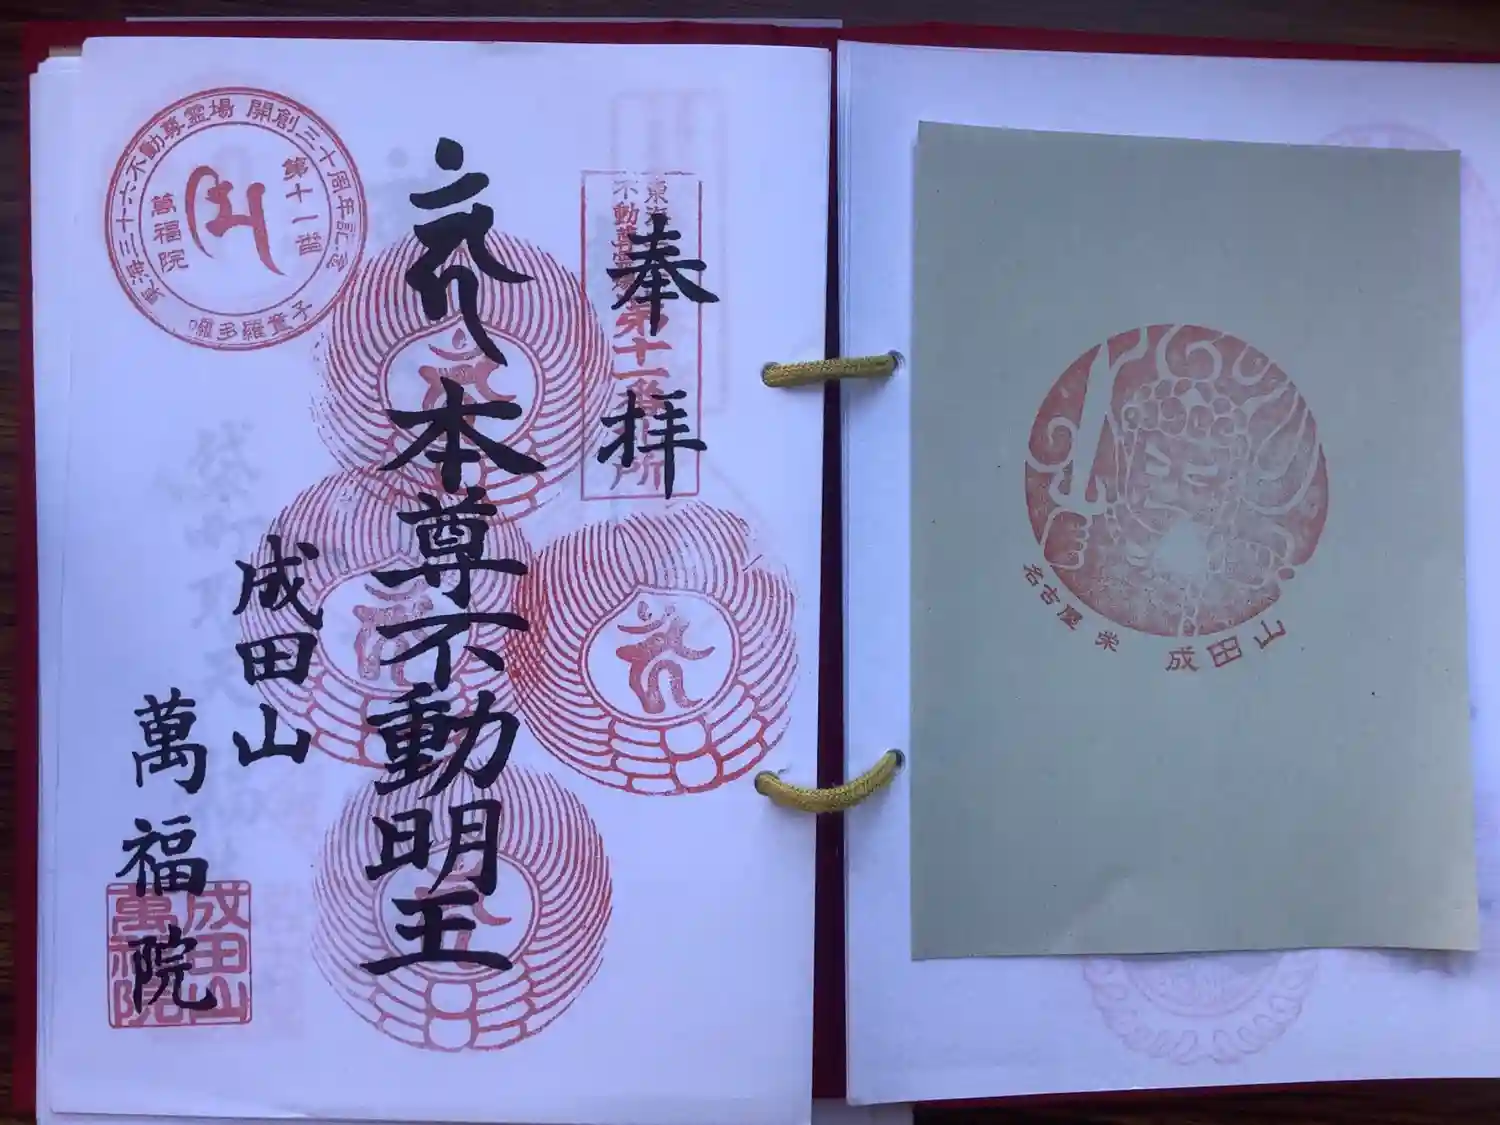 奉拝
本尊不動明王
成田山
萬福院
東海三十六不動尊霊場 開創三十周年記念
第十一番
萬福院
囉多羅童子
不動尊霊場第十一番
成田山
萬福院
名古屋 栄 成田山